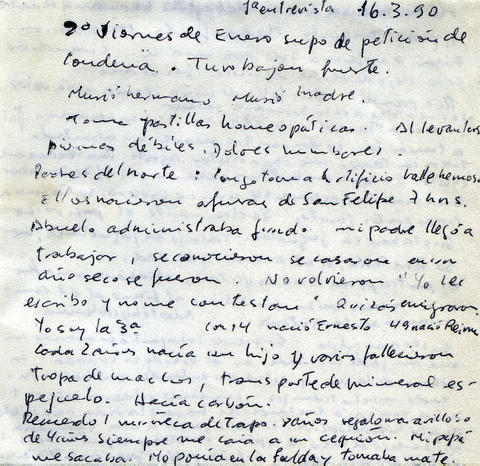 1a entrevista 16.3.90
2º Viernes de Enero supo de petición de
Condena. Tuvo bajón fuerte.
Murió hermano Murió madre.
Toma pastillas homeopáticas. Al levantarse
piernas débiles. Dolores lumbares.
Padres del norte:
Ellos nacieron afueras de San Felipe 7 hns.
Abuelo administraba fundo mi padre llegó a
trabajar, se conocieron se casaron en un
año seco se fueron. No volvieron "Yo les
escribo y no me contestan" Quizás emigraron
Yo soy la 3ª con 14 nació Ernesto 49 nació
Cada 2 años nacía un hijo y varios fallecieron
tropa de machos, transporte de mineral es-
pejuelo. Hacía carbón.
Recuerdo 1 muñeca de trapo. 2 años
de 4 años siempre me caía a un Mi papá
me sacaba. Me ponía en la falda y tomaba mate.